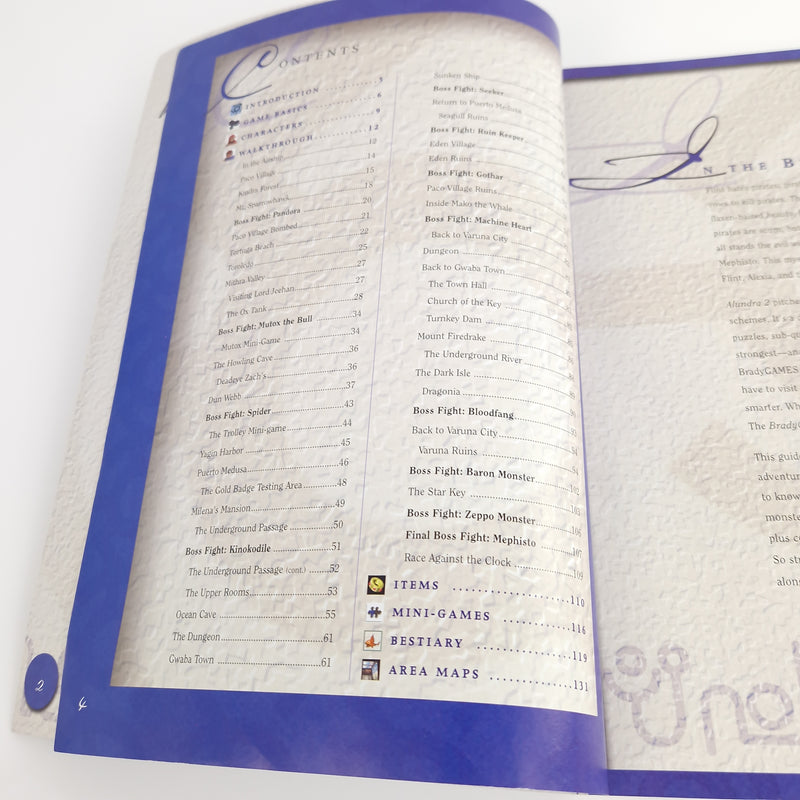 CONTENTS
INTRODUCTION ............ 5
GAME BASICS ............ 6
CHARACTERS ............ 9
WALKTHROUGH ............ 12
In the Airship ............ 12
Paco Village ............ 14
Kuuba Forest ............ 15
Mt. Sparrowhawk ............ 18
Boss Fight: Pandora ............ 20
Paco Village Bombed ............ 21
Tortuga Beach ............ 22
Toroledo ............ 25
Mithra Valley ............ 27
Visiting Lord Jeehan ............ 27
The Ox Tank ............ 28
Boss Fight: Mutox the Bull ............ 34
Mutox Mini-Game ............ 34
The Howling Cave ............ 36
Deadeye Zach's ............ 36
Dun Webb ............ 37
Boss Fight: Spider ............ 43
The Trolley Mini-game ............ 44
Yagin Harbor ............ 45
Puerto Medusa ............ 46
The Gold Badge Testing Area ............ 48
Milena's Mansion ............ 49
The Underground Passage ............ 50
Boss Fight: Kinokodile ............ 51
The Underground Passage (cont.) ............ 52
The Upper Rooms ............ 53
Ocean Cave ............ 55
The Dungeon ............ 61
Gwaba Town ............ 61
Sunken Ship
Boss Fight: Seeker
Return to Puerto Medusa
Seagull Ruins
Boss Fight: Ruin Keeper
Eden Village
Eden Ruins
Boss Fight: Gothar
Paco Village Ruins
Inside Mako the Whale
Boss Fight: Machine Heart
Back to Varuna City
Dungeon
Back to Gwaba Town
The Town Hall
Church of the Key
Turnkey Dam
Mount Firedrake
The Underground River
The Dark Isle
Dragonia
Boss Fight: Bloodfang
Back to Varuna City
Varuna Ruins
Boss Fight: Baron Monster ............ 102
The Star Key ............ 103
Boss Fight: Zeppo Monster ............ 106
Final Boss Fight: Mephisto ............ 107
Race Against the Clock ............ 109
ITEMS ............ 110
MINI-GAMES ............ 116
BESTIARY ............ 119
AREA MAPS ............ 131
2
4
IN THE B
pirates are scum, but
all stands the evil
Mephisto. This mys
Flint, Alexia, and
Alundra 2 pitche
schemes. It's a
puzzles, sub-qu
strongest—an
BradyGAMES
have to visit
smarter. Wh
The BradyG
This guid
adventur
to know
monste
plus co
So st
alon